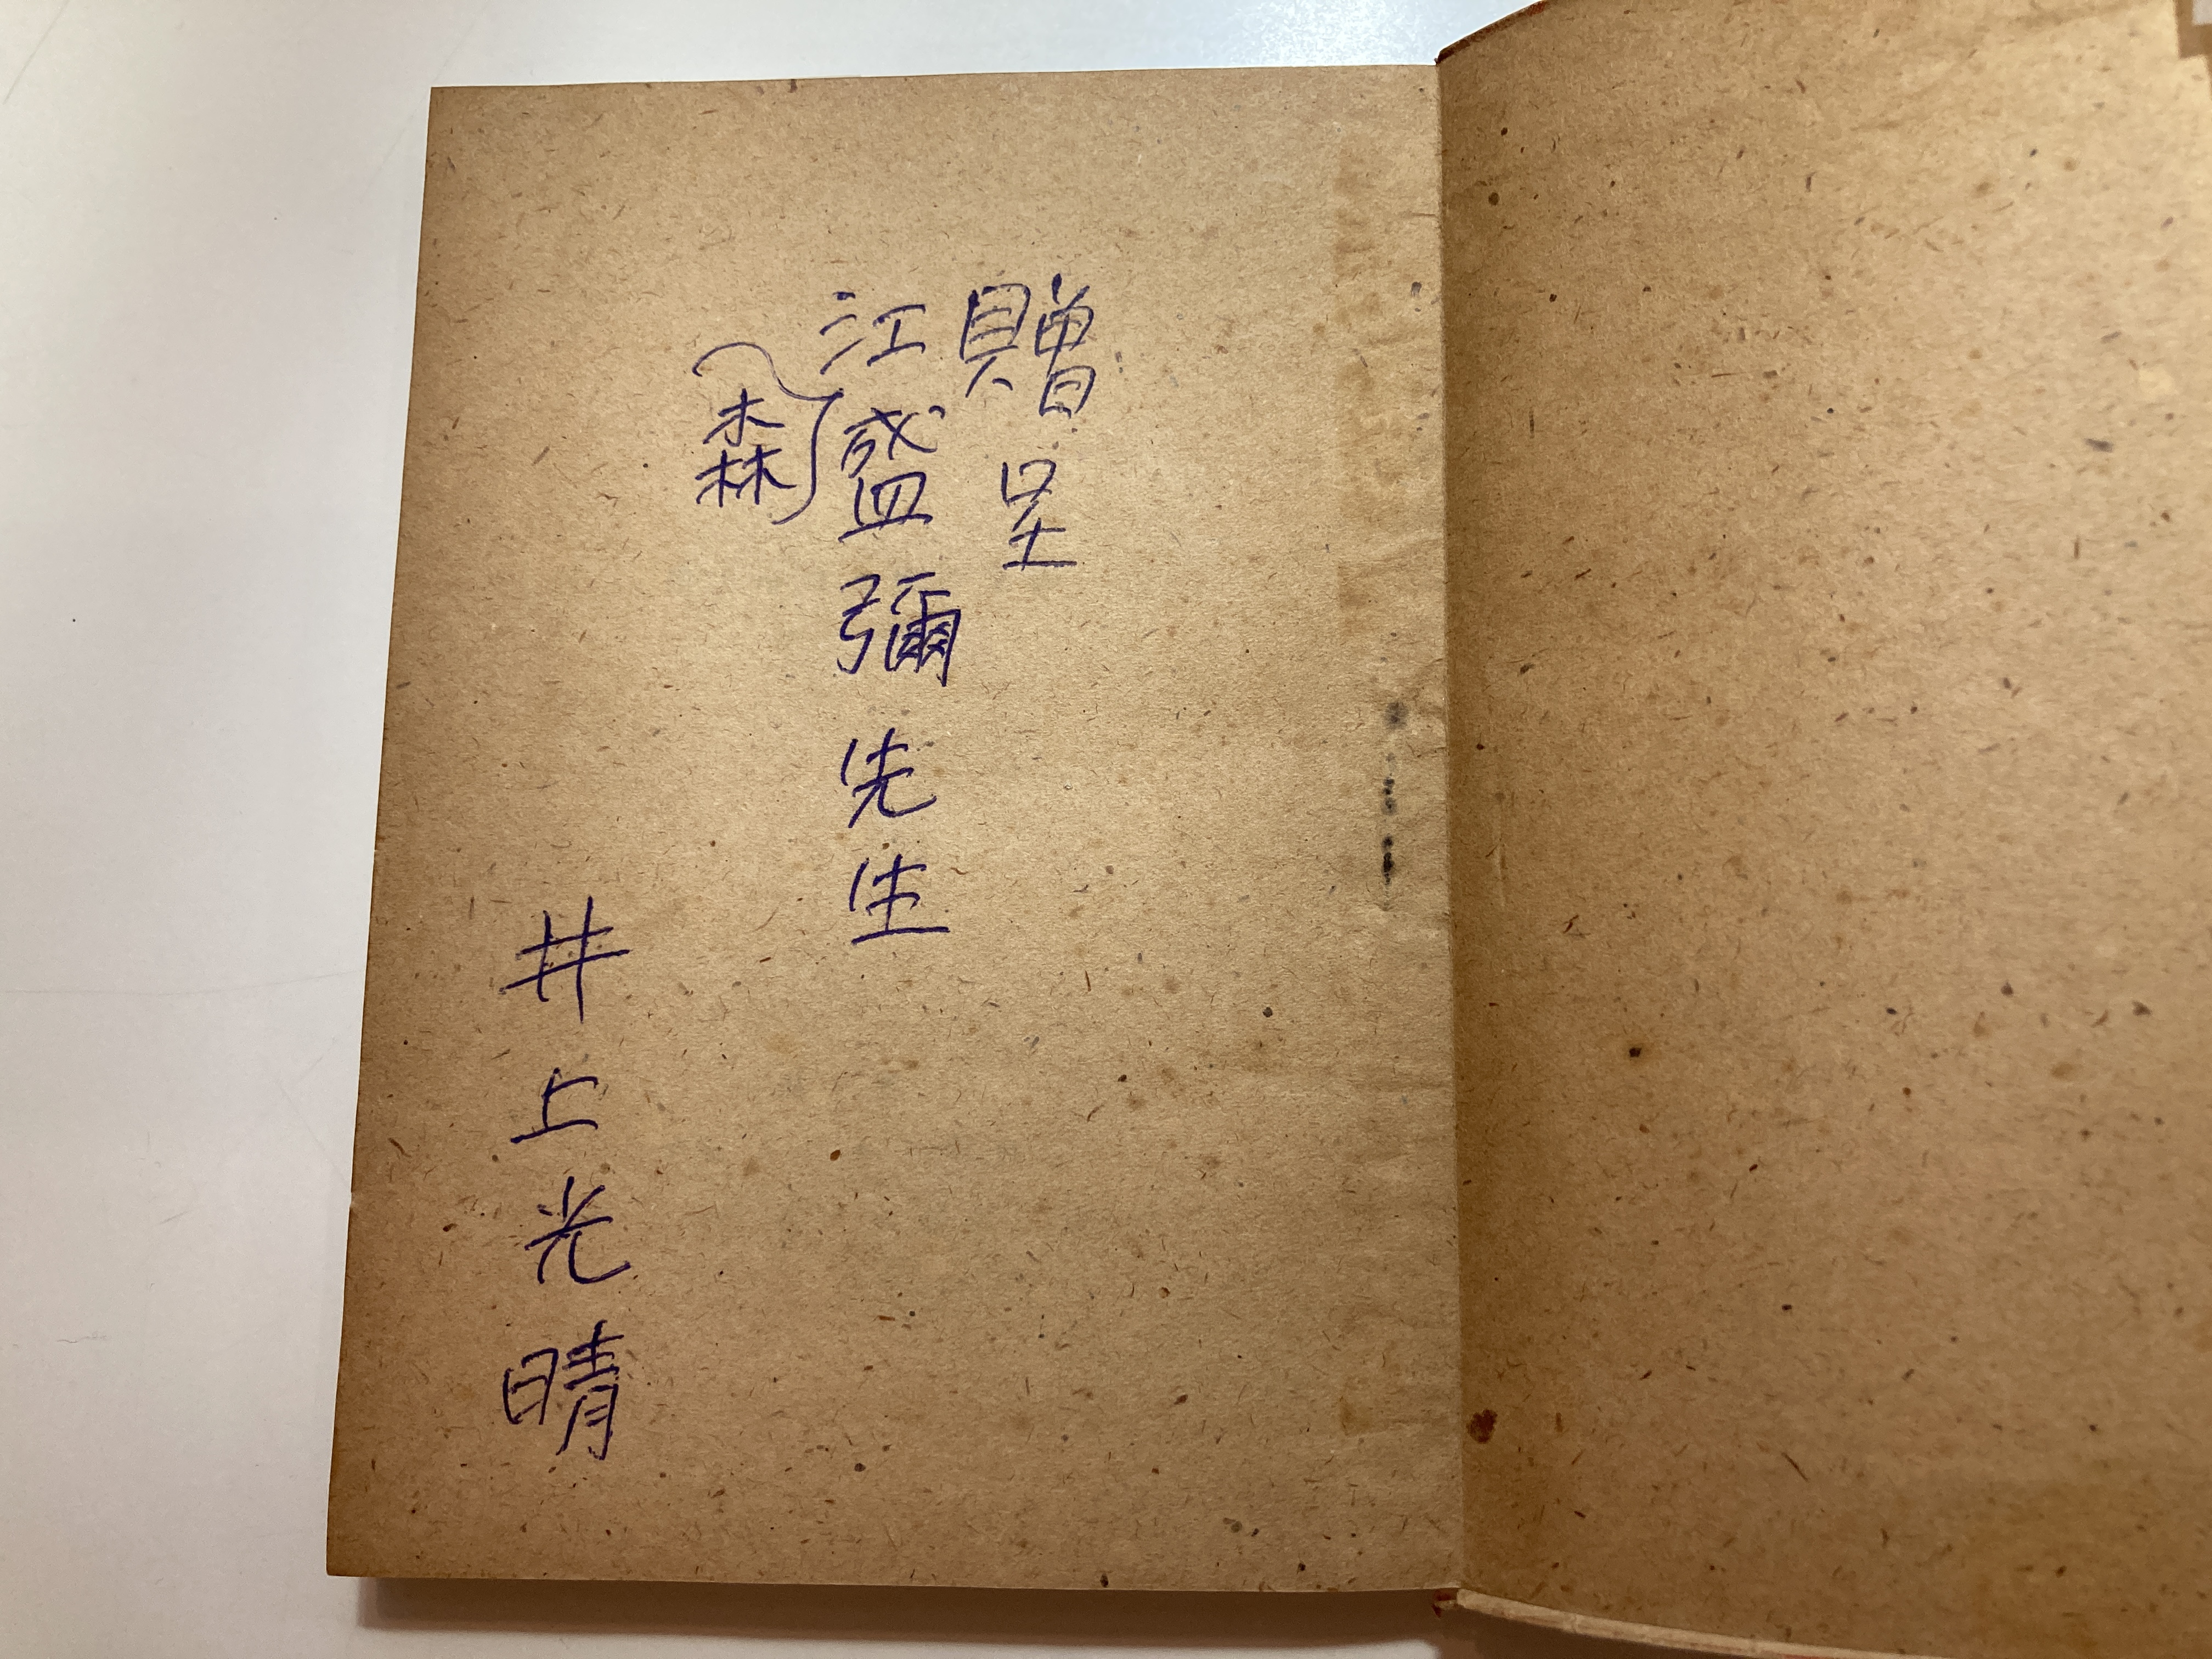 贈呈
江盛彌先生
森
井上光晴